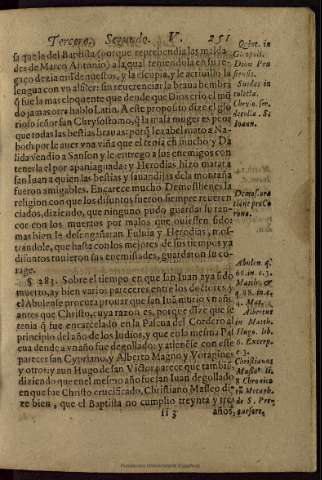 Tercero, Segundo. V. 251
des de Marco Antonio) a la qual teniendola en su re-
lengua con vn alfiler: sin reuerenciar la braua hembra
q̃ fue la mas eloquente que dende que Dios crio el mũ
do jamas otra hablo latin. A este proposito dize el glo
rioso señor san Chrysostomo, q̃ la mala muger es peor
que todas las bestias brauas: porq̃ Iezabel mato a Na-
both por le auer vna viña que el tenia en mucho: y Da
lida vendio a Sanson y le entrego a sus enemigos con
tenerla el por apaniaguada: y Herodias hizo matar a
san Iuan a quien las bestias y sauandijas de la montaña
fueron amigables. Encarece mucho Demosthenes la
religion con que los disuntos fueron siempre reueren
ciados, diziendo, que ninguno pudo guardar su ran-
cor con los muertos por malos que ouiessen sido:
mas bien le desengañaran Fuluia y Herodias, mos-
trandole, que hasta con los mejores de sus tiempos ya
difuntos tuuieron sus enemistades, guardaron su co-
rage.
§ 283. Sobre el tiempo en que san Iuan aya sido
muerto, ay bien varios pareceres entre los doctores: y
el Abulense procura prouar que san Iuã murio vn año
antes que Christo, cuya razon es, porque dize que se
tenia q̃ fue encarcelado en la Pascua del Cordero al
principio del año de los Iudios, y que en la mesma Pas
cua dende a vn año fue degollado: y atienese con este
parecer san Cypriano, y Alberto Magno y Voragines
y otros: y aun Hugo de san Victor parece que tambiẽ,
diziendo que en el mesmo año fue san Iuan degollado
en que fue Christo crucificado. Christiano Masseo di-
ze bien, que el Baptista no cumplio treynta y tres
Ii 3 años,
Quint. in
Dion Pru
siensis.
Suidas in
Chryso.
Ioann.
Demost. ora
tione pro Co
rona.
Abulen. q.
Matth. &
Albertus
in Matth.
Hugo. lib.
6. Excerp.
c. 3.
Christianus
8 Chronico